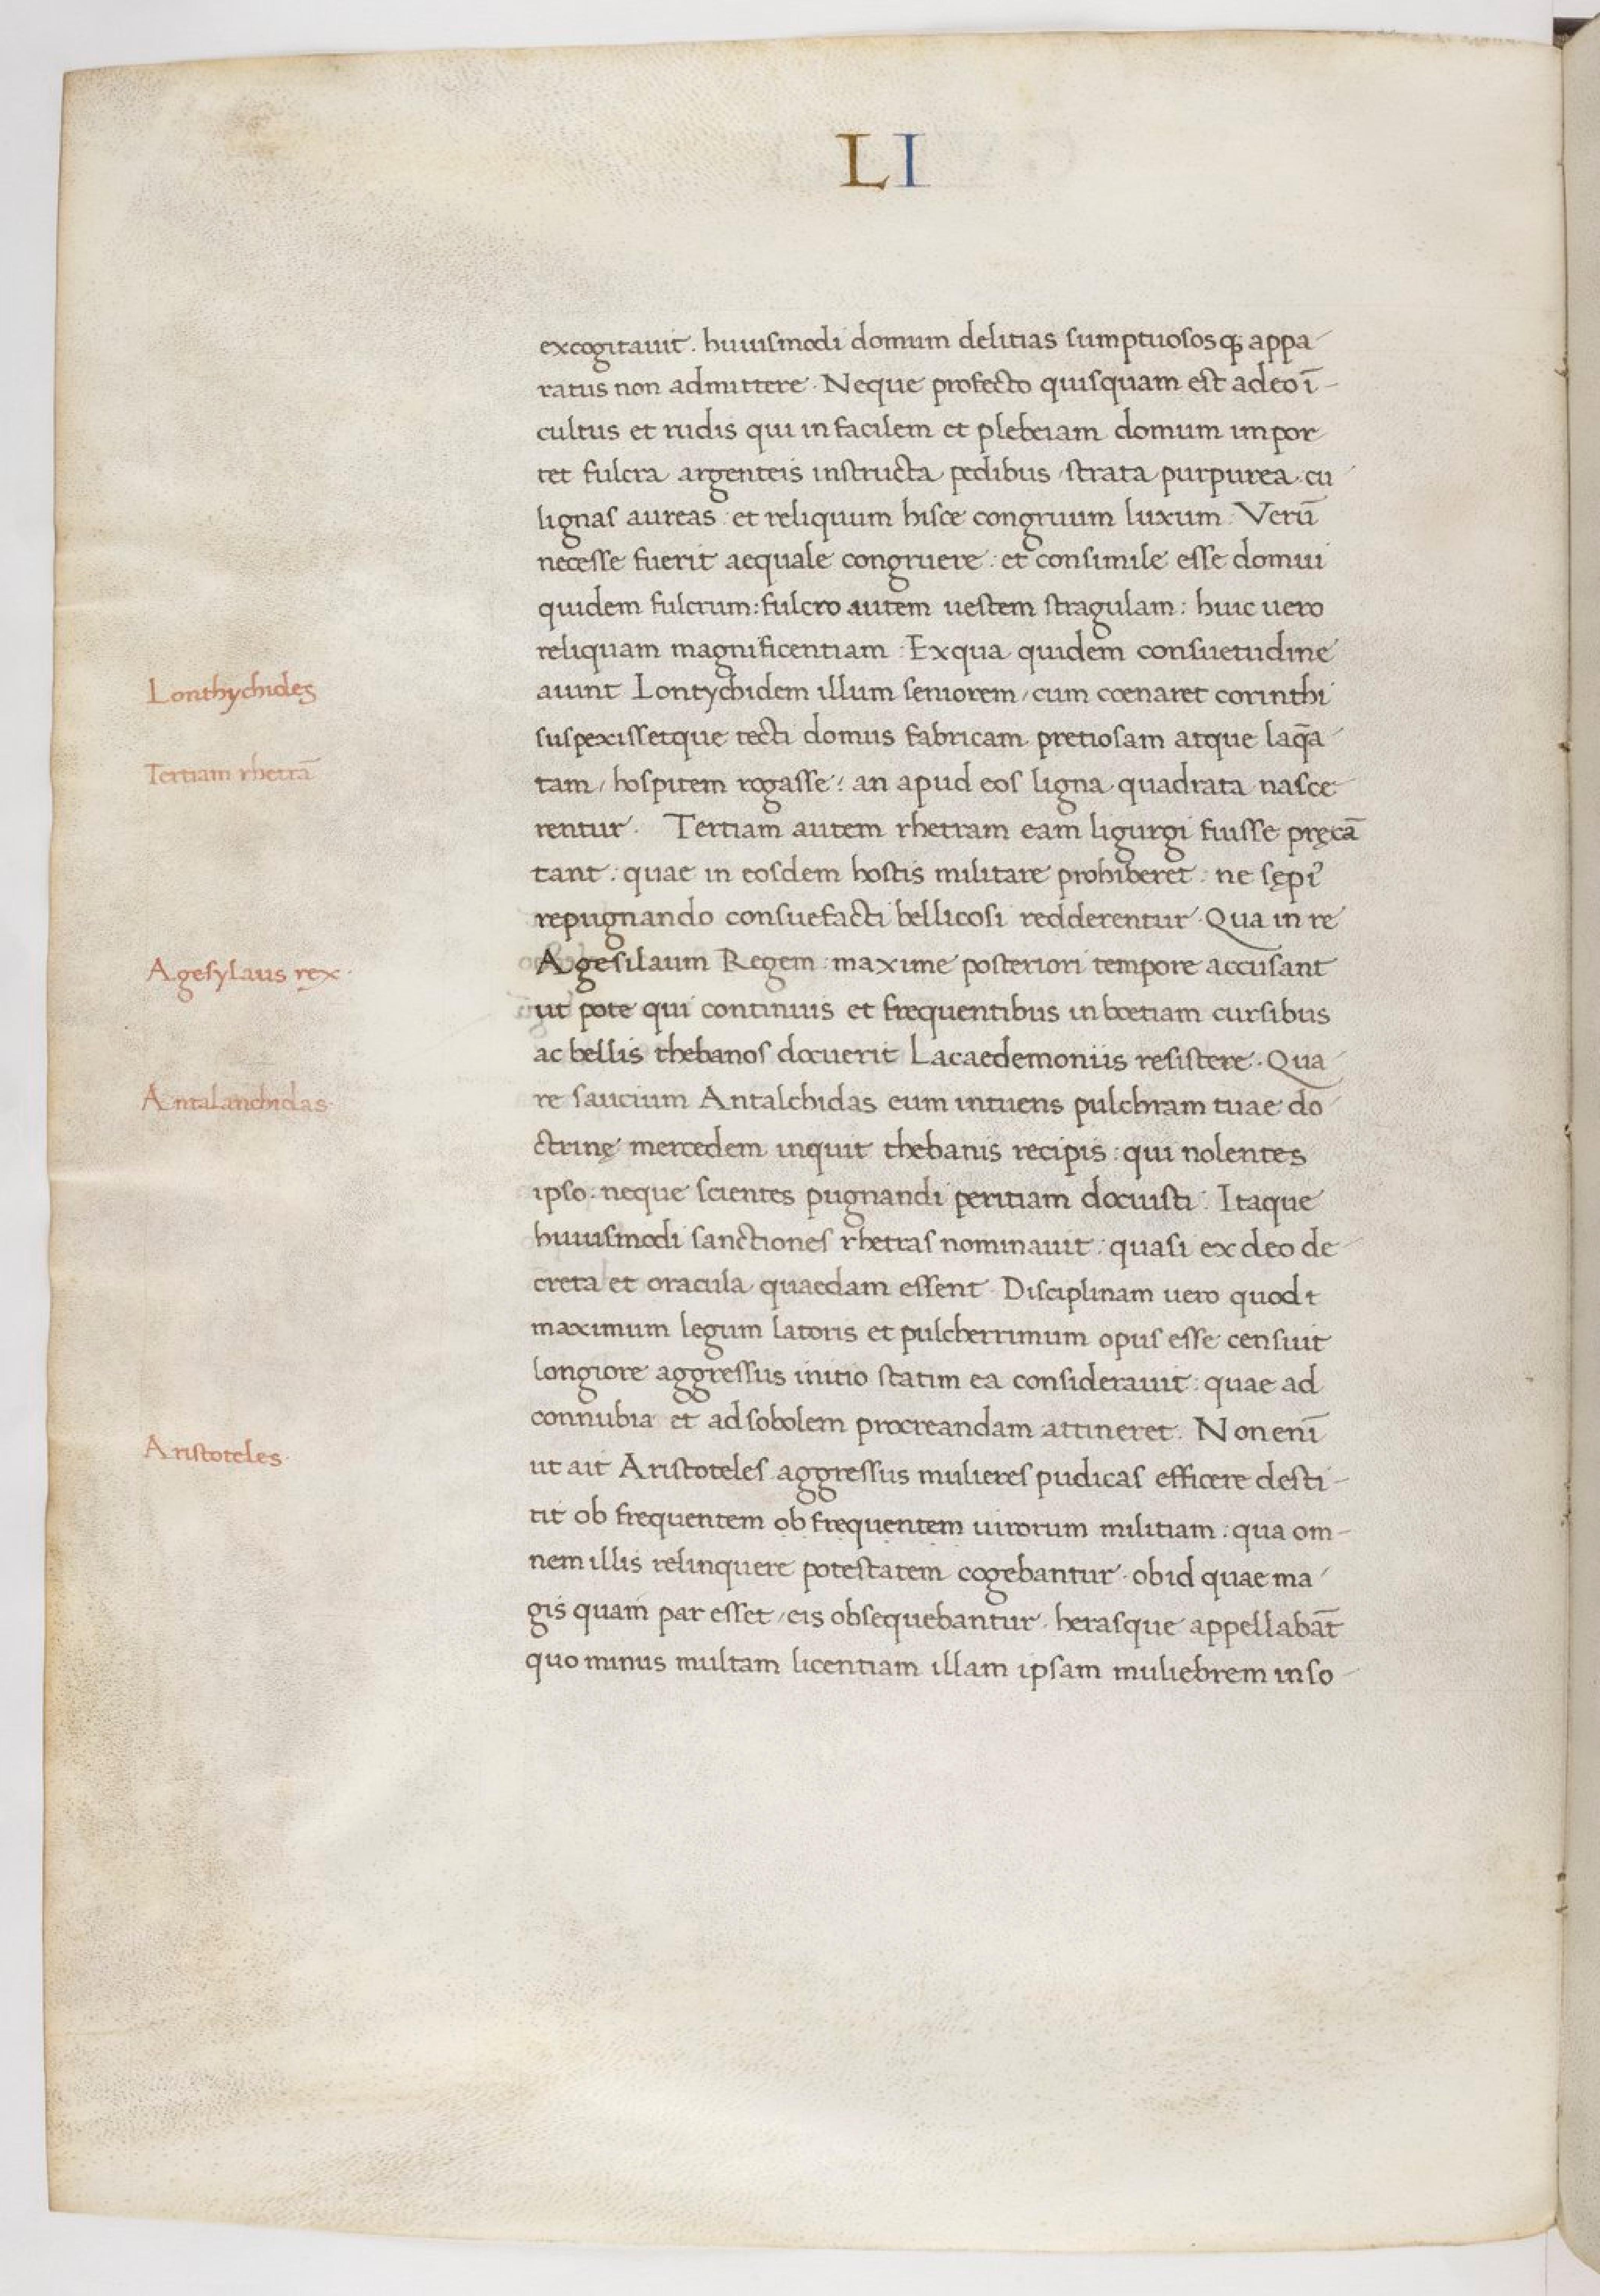 LI
excogitauit. huiusmodi domum delitias sumptuososq; appa-
ratus non admittere. Neque profecto quisquam est adeo ī-
cultus et rudis qui in facilem et plebeiam domum impor-
tet fulcra argenteis instructa pedibus, strata purpurea. cu-
lignas aureas: et reliquum hisce congruum luxum. Verū
necesse fuerit aequale congruere: et consimile esse domui
quidem fulcrum: fulcro autem uestem stragulam: huic uero
reliquam magnificentiam. Ex qua quidem consuetudine
Lonthychides
aiunt Lontychidem illum seniorem, cum coenaret corinthi
suspexissetque tecti domus fabricam pretiosam atque laq̄a-
Tertiam rhetrā
tam, hospitem rogasse: an apud eos ligna quadrata nasce-
rentur. Tertiam autem rhetram eam ligurgi fuisse pręcā
tant: quae in eosdem hostis militare prohiberet: ne sępi᾽
repugnando consuefacti bellicosi redderentur. Qua in re
Agesylaus rex.
Agesilaum Regem: maxime posteriori tempore accusant
ut pote qui continuis et frequentibus in boetiam cursibus
ac bellis thebanos docuerit Lacaedemoniis resistere. Qua-
Antalanchidas.
re saucium Antalchidas eum intuens pulchram tuae do-
ctrinę mercedem inquit thebanis recipis: qui nolentes
ipso. neque scientes pugnandi peritiam docuisti. Itaque
huiusmodi sanctiones rhetras nominauit: quasi ex deo de-
creta et oracula quaedam essent. Disciplinam uero quod
maximum legum latoris et pulcherrimum opus esse censuit
longiore aggressus initio statim ea considerauit: quae ad
connubia et ad sobolem procreandam attineret. Non enī
Aristoteles.
ut ait Aristoteles aggressus mulieres pudicas efficere desti-
tit ob frequentem ob frequentem uirorum militiam: qua om-
nem illis relinquere potestatem cogebantur. ob id quae ma-
gis quam par esset, eis obsequebantur. herasque appellabāt
quo minus multam licentiam illam ipsam muliebrem in so-